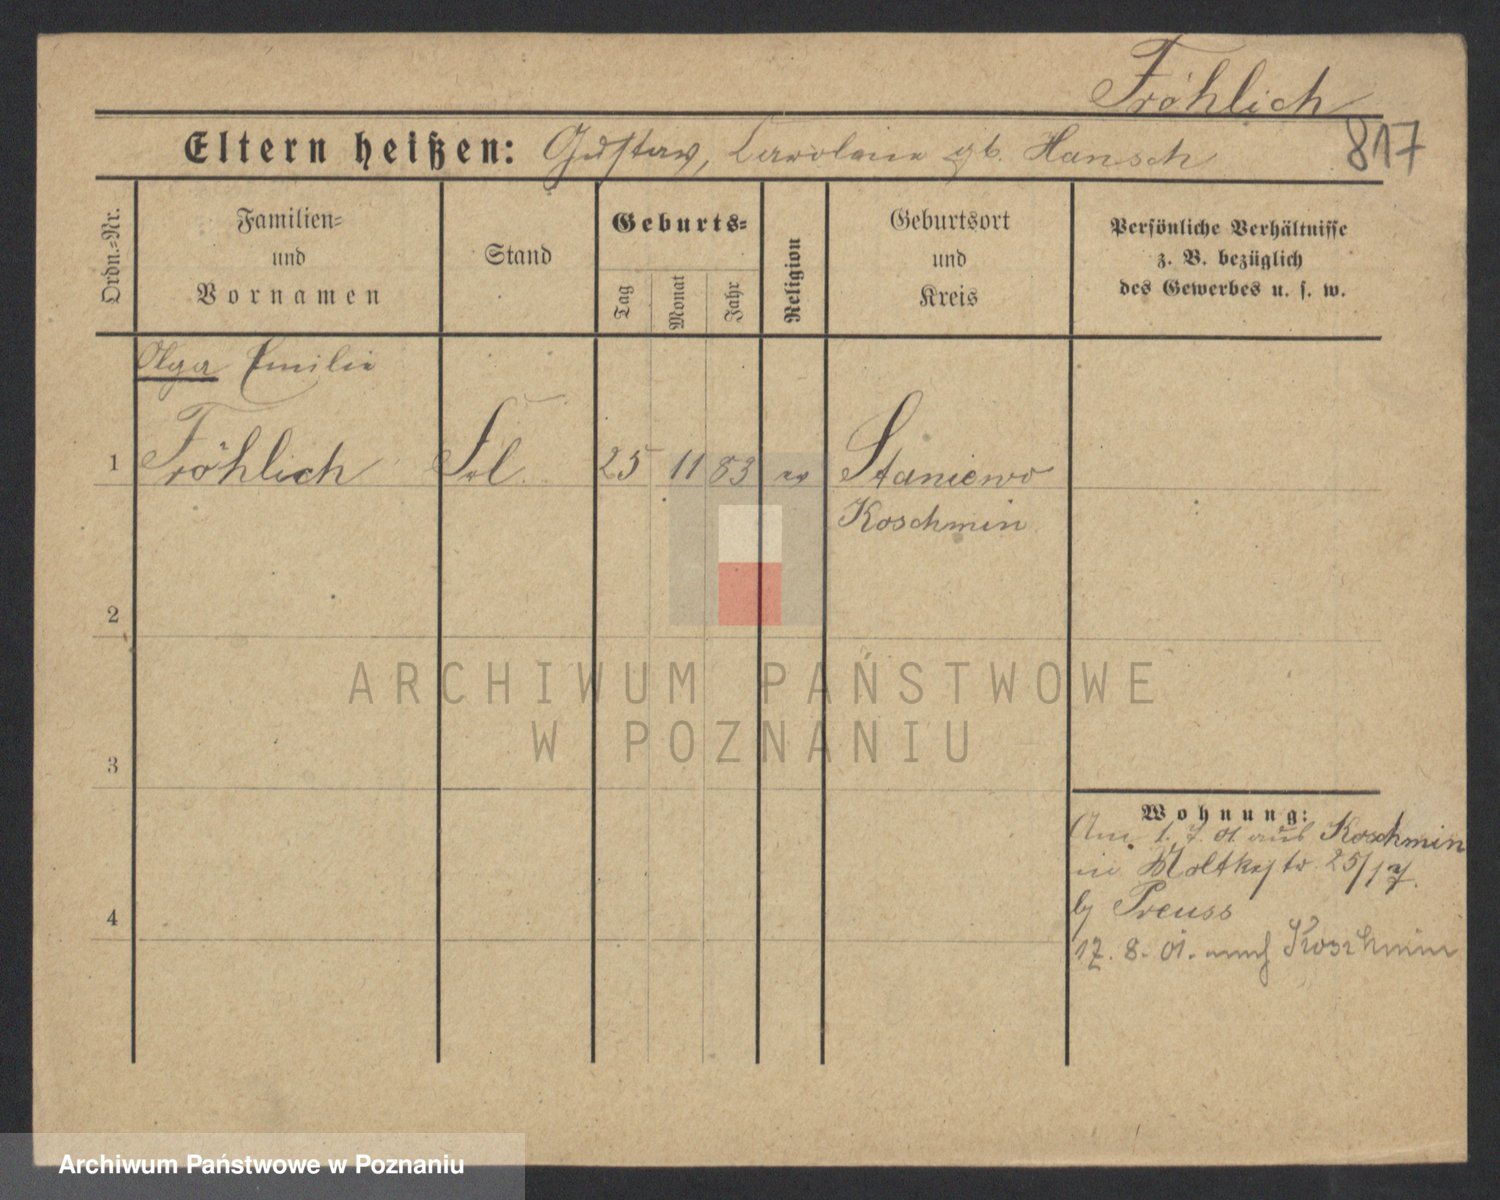 Fröhlich
817
Eltern heißen: Gustav, Caroline gb. Hansch
Ordn.=Nr.
Familien=
und
Vornamen
Stand
Geburts=
Tag
Monat
Jahr
Religion
Geburtsort
und
Kreis
Persönliche Verhältnisse
z. B. bezüglich
des Gewerbes u. s. w.
Olga Emilie
1 Fröhlich Frl. 25 11 83 ev Staniewo
Koschmin
2
3
4
Wohnung:
Am 1. 7. 01. aus Koschmin
in Moltkestr 25/17.
by Preuss
17. 8. 01. nach Koschmin
ARCHIWUM PAŃSTWOWE
W POZNANIU
Archiwum Państwowe w Poznaniu